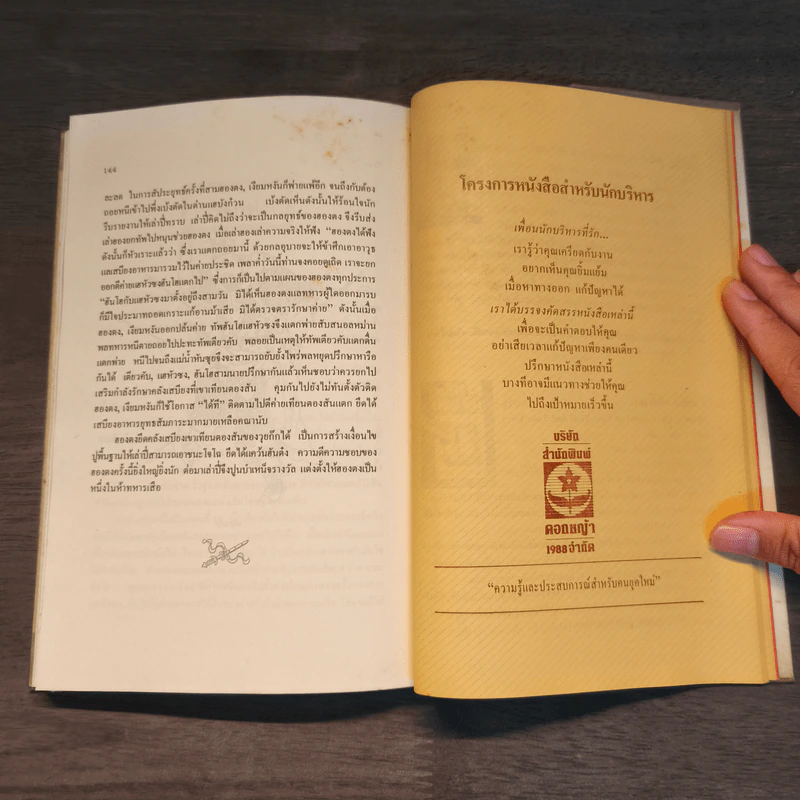 144
ละลด ในการสัประยุทธ์ครั้งที่สามฮองตง, เงียมหงันก็พ่ายแพ้อีก จนถึงกับต้อง
ถอยหนีเข้าไปพึ่งเบ้งตัดในด่านแฮบังก๋วน เบ้งตัดเห็นดังนั้นให้ร้อนใจนัก
รีบรายงานให้เล่าปี่ทราบ เล่าปี่คิดไม่ถึงว่าจะเป็นกลยุทธ์ของฮองตง จึงรีบส่ง
เล่าฮองยกทัพไปหนุนช่วยฮองตง เมื่อเล่าฮองเล่าความจริงให้ฟัง “ฮองตงได้ฟัง
ดังนั้นก็หัวเราะแล้วว่า ซึ่งเราแตกถอยมานี้ ด้วยกลอุบายจะให้ข้าศึกเอาอาวุธ
แลเสบียงอาหารมารวมไว้ในค่ายประชิด เพลาค่ำวันนี้ท่านจงคอยดูเถิด เราจะยก
ออกตีค่ายแฮหัวซงฮันโฮแตกไป” ซึ่งการก็เป็นไปตามแผนของฮองตงทุกประการ
“ฮันโฮกับแฮหัวซงมาตั้งอยู่ถึงสามวัน มิได้เห็นฮองตงแลทหารผู้ใดออกมารบ
ก็มีใจประมาทถอดเกราะแก้อานม้าเสีย มิได้ตรวจตรารักษาค่าย” ดังนั้นเมื่อ
ฮองตง, เงียมหงันออกปล้นค่าย ทัพฮันโฮแฮหัวซงจึงแตกพ่ายสับสนอลหม่าน
พลทหารหนีตายถอยไปปะทะทัพเตียวคับ พลอยเป็นเหตุให้ทัพเตียวคับแตกตื่น
แตกพ่าย หนีไปจนถึงแม่น้ำหันซุยจึงจะสามารถยับยั้งไพร่พลหยุดปรึกษาหารือ
กันได้ เตียวคับ, แฮหัวซง, ฮันโฮสามนายปรึกษากันแล้วเห็นชอบว่าควรยกไป
เสริมกำลังรักษาคลังเสบียงที่เขาเทียนตองสัน คุมกันไปยังไม่ทันตั้งตัวติด
ฮองตง, เงียมหงันก็ใช้โอกาส “ได้ที” ติดตามไปตีค่ายเทียนตองสันแตก ยึดได้
เสบียงอาหารยุทธสัมภาระมากมายเหลือคณานับ
ฮองตงยึดคลังเสบียงเขาเทียนตองสันของวุยก๊กได้ เป็นการสร้างเงื่อนไข
ปูพื้นฐานให้เล่าปี่สามารถเอาชนะโจโฉ ยึดได้แคว้นฮันต๋ง ความดีความชอบของ
ฮองตงครั้งนี้ยิ่งใหญ่ยิ่งนัก ต่อมาเล่าปี่จึงปูนบำเหน็จรางวัล แต่งตั้งให้ฮองตงเป็น
หนึ่งในห้าทหารเสือ
โครงการหนังสือสำหรับนักบริหาร
เพื่อนนักบริหารที่รัก...
เรารู้ว่าคุณเครียดกับงาน
อยากเห็นคุณยิ้มแย้ม
เมื่อหาทางออก แก้ปัญหาได้
เราได้บรรจงคัดสรรหนังสือเหล่านี้
เพื่อจะเป็นคำตอบให้คุณ
อย่าเสียเวลาแก้ปัญหาเพียงคนเดียว
ปรึกษาหนังสือเหล่านี้
บางทีอาจมีแนวทางช่วยให้คุณ
ไปถึงเป้าหมายเร็วขึ้น
บริษัท
สำนักพิมพ์
ดอกหญ้า
1988จำกัด
“ความรู้และประสบการณ์สำหรับคนยุคใหม่”